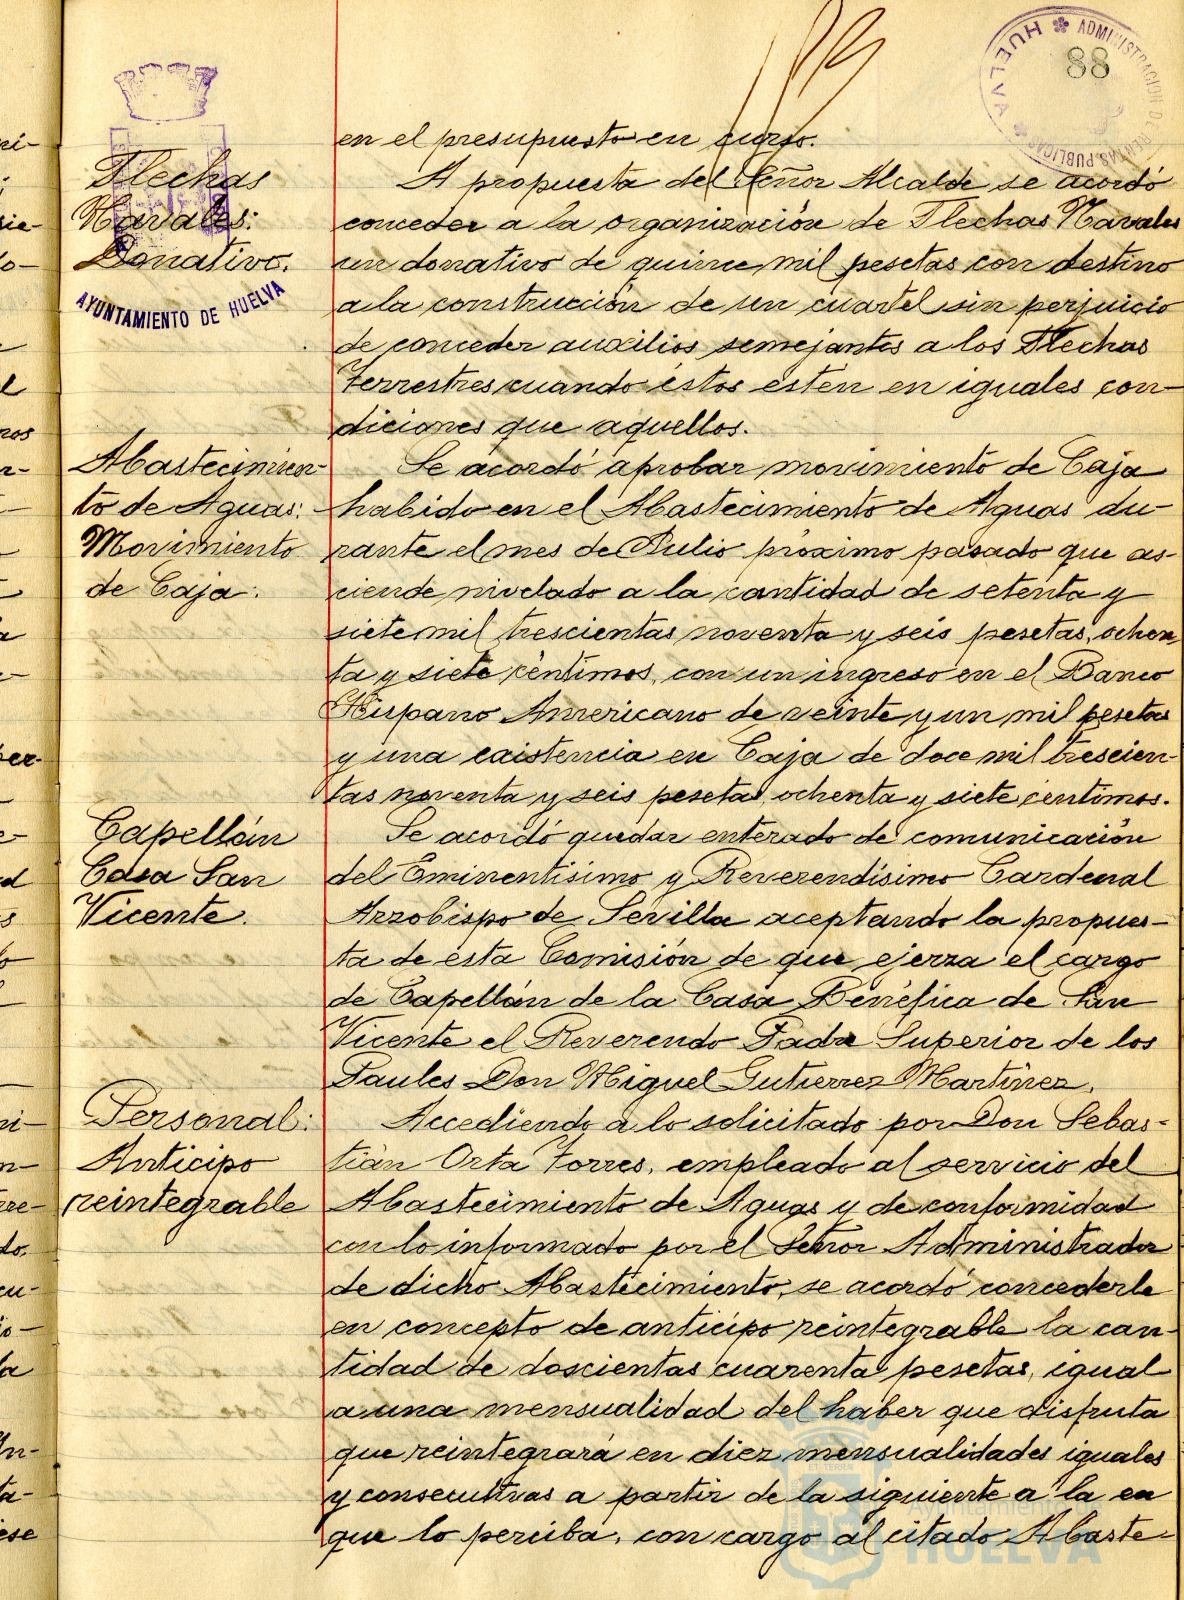 88
HUELVA * ADMINISTRACION DE RENTAS PUBLICAS *
en el presupuesto en curso.
Flechas
Navales:
Donativo.
AYUNTAMIENTO DE HUELVA
A propuesta del Señor Alcalde se acordó
conceder a la organización de Flechas Navales
un donativo de quince mil pesetas con destino
a la construcción de un cuartel sin perjuicio
de conceder auxilios semejantes a los Flechas
Terrestres cuando éstos esten en iguales con-
diciones que aquellos.
Abastecimien-
to de Aguas:
Movimiento
de Caja:
Se acordó aprobar movimiento de Caja
habido en el Abastecimiento de Aguas du-
rante el mes de Julio próximo pasado que as-
ciende nivelado a la cantidad de setenta y
siete mil trescientas noventa y seis pesetas, ochen
ta y siete céntimos, con un ingreso en el Banco
Hispano Americano de veinte y un mil pesetas
y una existencia en Caja de doce mil trescien-
tas noventa y seis pesetas, ochenta y siete céntimos.
Capellán
Casa San
Vicente.
Se acordó quedar enterado de comunicación
del Eminentísimo y Reverendísimo Cardenal
Arzobispo de Sevilla aceptando la propues-
ta de esta Comisión de que ejerza el cargo
de Capellán de la Casa Benéfica de San
Vicente el Reverendo Padre Superior de los
Paules Don Miguel Gutierrez Martínez.
Personal:
Anticipo
reintegrable
Accediendo a lo solicitado por Don Sebas-
tián Orta Torres, empleado al servicio del
Abastecimiento de Aguas y de conformidad
con lo informado por el Señor Administrador
de dicho Abastecimiento, se acordó concederle
en concepto de anticipo reintegrable la can-
tidad de doscientas cuarenta pesetas, igual
a una mensualidad del haber que disfruta
que reintegrará en diez mensualidades iguales
y consecutivas a partir de la siguiente a la en
que lo perciba, con cargo al citado Abaste-
Ayuntamiento de
HUELVA